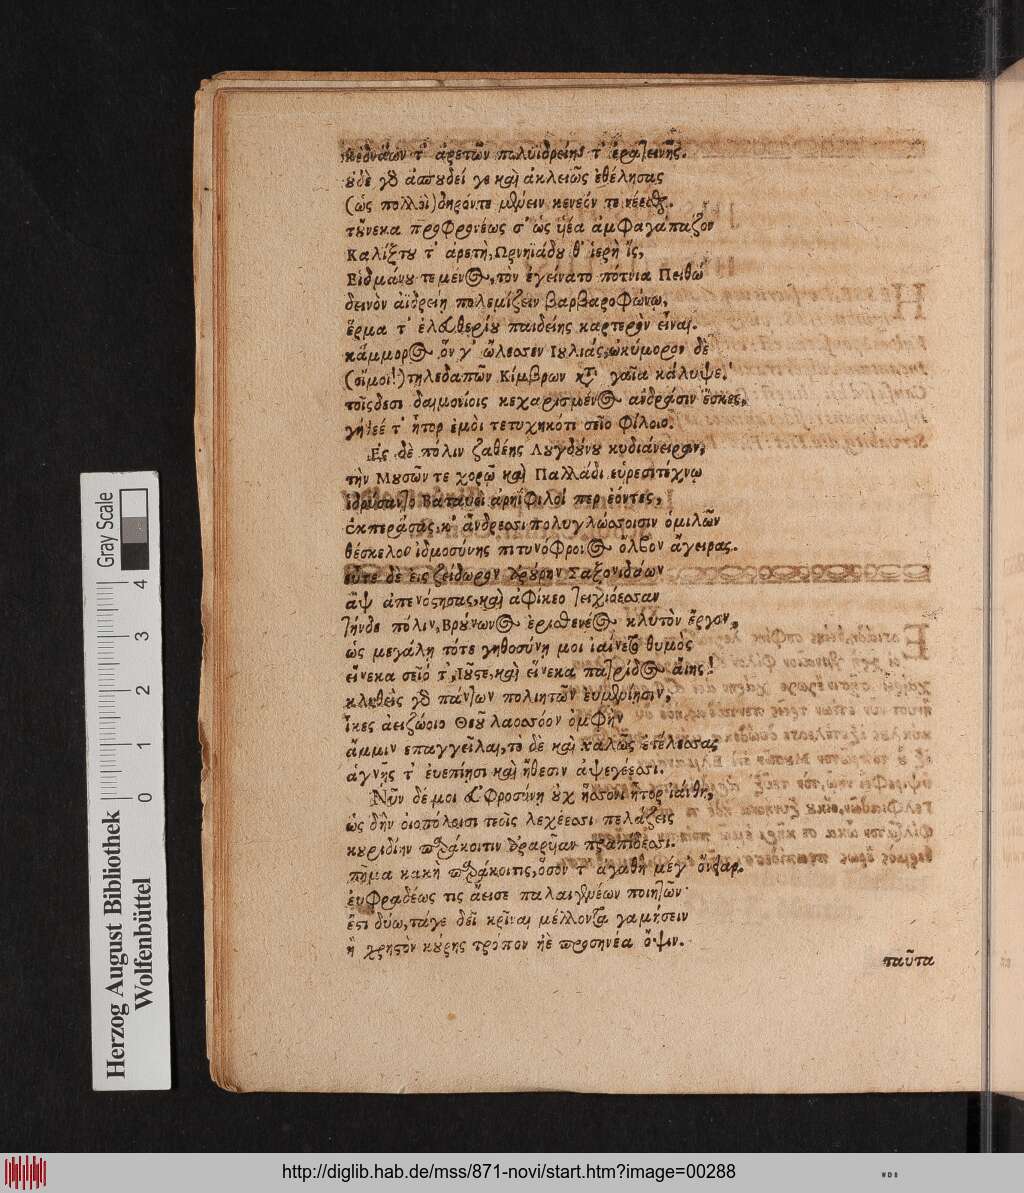 κεδνάων τ' ἀρετῶν πολυϊδρείης τ' ἐρατεινῆς.
οὐδὲ γὰρ ἀσπουδεί γε καὶ ἀκλειῶς ἐθέλησας
(ὡς πολλοὶ) δηρόντε μένειν κενεόν τε νέεσθαι.
τοὔνεκα προφρονέως σ' ὡς ἀμφαγάπαζον
Καλίξτου τ' ἀρετὴ, Ὠρνηϊάδου θ' ἱερὴ ἲς,
Εἰδμάνου τε μένος, τὸν ἐγείνατο πότνια Πειθὼ
δεινὸν ἀϊδρείῃ πολεμίζειν βαρβαροφώνῳ,
ἕρμα τ' ἐλευθερίου παιδείης καρτερὸν εἶναι.
κάμμορος ὃν γ' ὤλεσσεν Ἰουλιάς, ὠκύμορον δὲ
(οἴμοι!) τηλεδαπῶν Κίμβρων κατὰ γαῖα κάλυψε.
τοῖςδεσι δαιμονίοις κεχαρισμένος ἀνδράσιν ἔσκες,
γήθεέ τ' ἦτορ ἐμοὶ τετυχηκότι σεῖο φίλοιο.
Ἐς δὲ πόλιν ζαθέης Λουγδύνου κυδιάνειραν,
τὴν Μουσῶν τε χορῷ καὶ Παλλάδι εὑρεσιτέχνῳ
ἱδρύσαντο Βαταυοὶ ἀρηΐφιλοί περ ἐόντες,
ἐκπεράσας, κ' ἄνδρεσσι πολυγλώσσοισιν ὁμιλῶν
θέσκελον ἰδμοσύνης πιτυνόφρονος ὄλβον ἄγειρας.
εὖτε δὲ εἰς ζείδωρον ἄρουρην Σαξονιδάων
ἂψ ἀπενόστησας, καὶ ἀφίκεο τειχιόεσσαν
τήνδε πόλιν, Βρούνωνος ἐρισθενέος κλυτὸν ἔργον,
ὡς μεγάλῃ τότε γηθοσύνῃ μοι ἰαίνετο θυμὸς
εἵνεκα σεῖό τ', Ἰοῦστε, καὶ εἵνεκα πατρίδος αἴης!
κληθεὶς γὰρ πάντων πολιητῶν εὐμενίῃσιν,
ἷκες ἀειζώοιο Θεοῦ λαοσσόον ὀμφὴν
ἄμμιν ἐπαγγεῖλαι, τὸ δὲ καὶ καλῶς ἐτέλεσσας
ἁγνῆς τ' ἐυεπίῃσι καὶ ἤθεσιν ἀψεγέεσσι.
Νῦν δέ μοι εὐφροσύνῃ οὐχ ἥσσονι ἦτορ ἰάνθη,
ὡς δὴν οἰοπόλοισι τεοῖς λεχέεσσι πελάζεις
κουριδίην παράκοιτιν ἀραρῦαν πραπίδεσσι.
πῆμα κακὴ παράκοιτις, ὅσον τ' ἀγαθὴ μέγ' ὄνειαρ.
ἐυφραδέως τις ἄεισε παλαιγενέων ποιητῶν
ἔστι δύω, τάγε δεῖ κρῖναι μέλλοντα γαμήσειν
ἢ χρηστὸν κούρης τρόπον ἠὲ προσηνέα ὄψιν.
ταῦτα
Gray Scale
0 1 2 3 4
Herzog August Bibliothek
Wolfenbüttel
http://diglib.hab.de/mss/871-novi/start.htm?image=00288